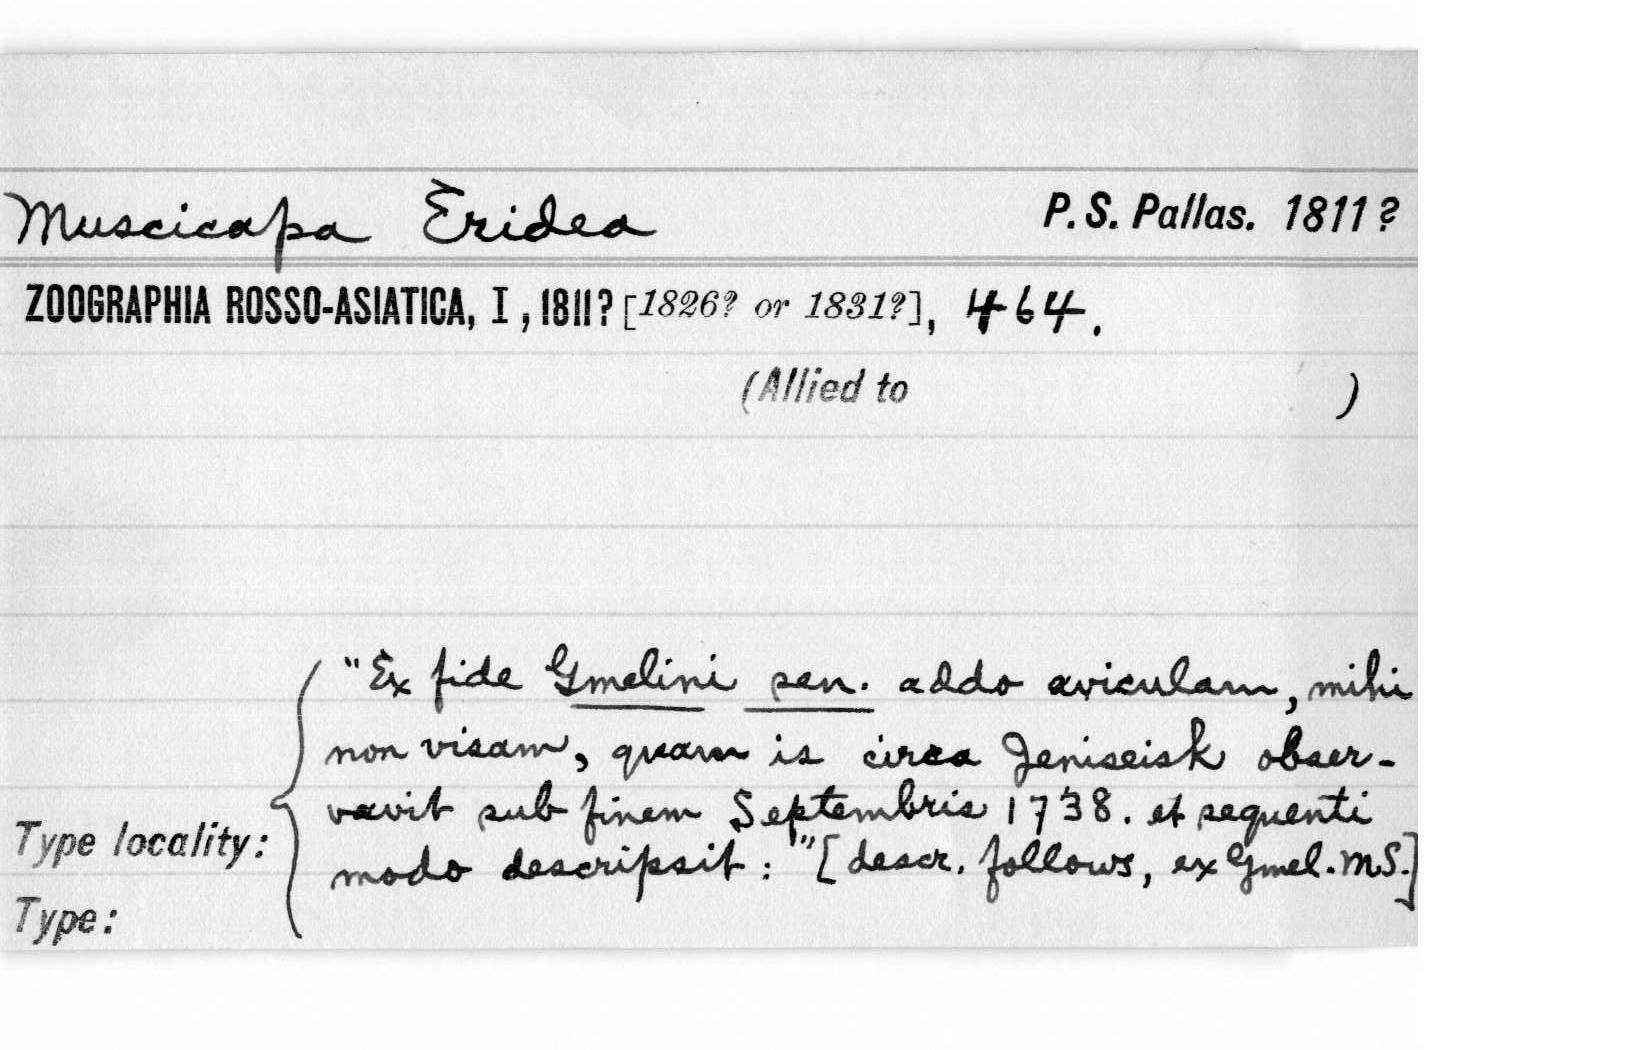 Muscicapa Eridea P. S. Pallas. 1811?
ZOOGRAPHIA ROSSO-ASIATICA, I, 1811? [1826? or 1831?], 464.
(Allied to )
"Ex fide Gmelini sen. addo aviculam, mihi
non visam, quam is circa Jeniseisk obser-
vavit sub finem Septembris 1738. et sequenti
Type locality: modo descripsit:" [descr. follows, ex Gmel. MS.]
Type: